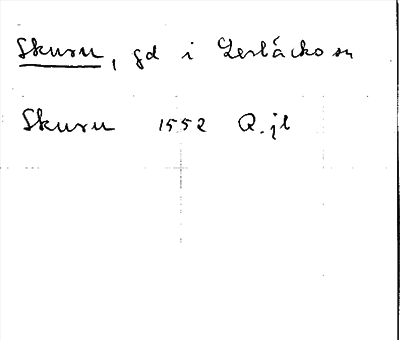 Skuru, gd i Lerbäcko sn
Skuru 1552 Q. jb